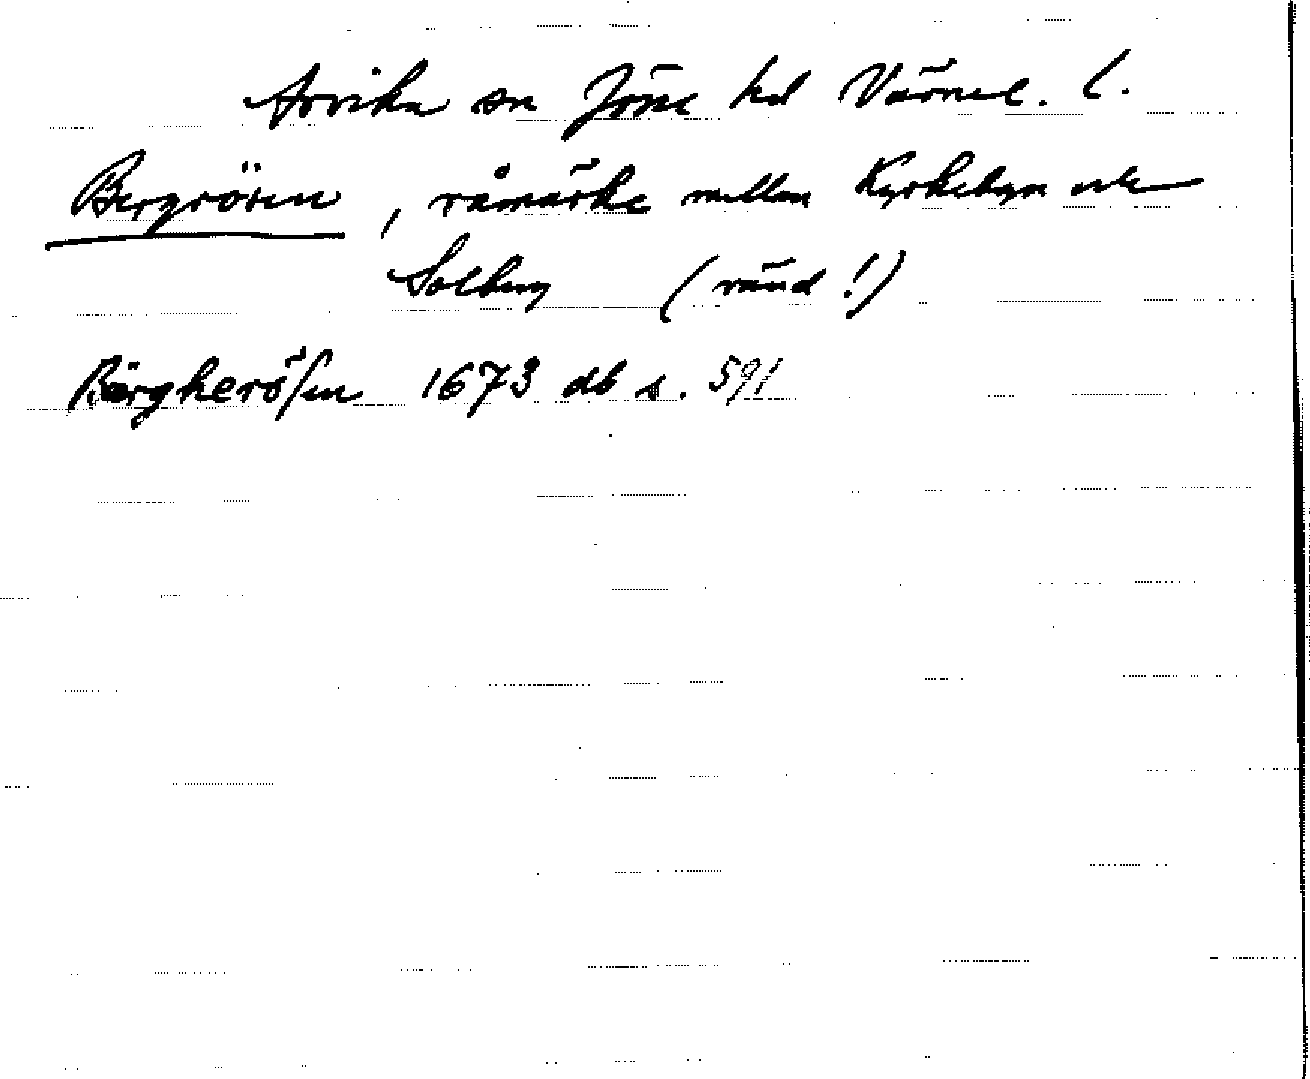 Arvika sn Jösse hd Värml. l.
Bergrösen, råmärke mellan Kyrkebyn och
Solberg (ränd!)
Bärgkerösen 1673 db s. 591